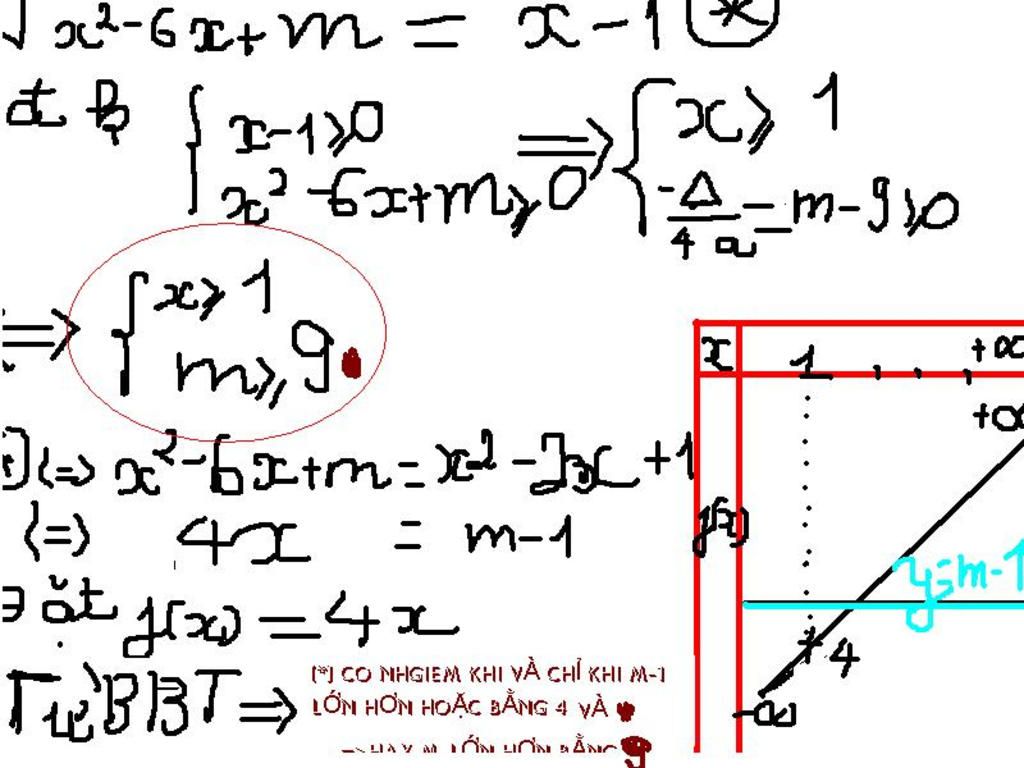 √x²-6x+m = x-1 (*)
{ x-1⩾0
x²-6x+m⩾0
=> { x⩾1
-Δ/4a = m-9⩾0
=> { x⩾1
m⩾9
<=> x²-6x+m = x²-2x+1
<=> 4x = m-1
đặt f(x) = 4x
Từ BBT =>
(*) CO NHGIEM KHI VÀ CHỈ KHI M-1
LỚN HƠN HOẶC BẰNG 4 VÀ
=> HAY M LỚN HƠN BẰNG 9
x 1 +∞
+∞
f(x)
y=m-1
4
-∞